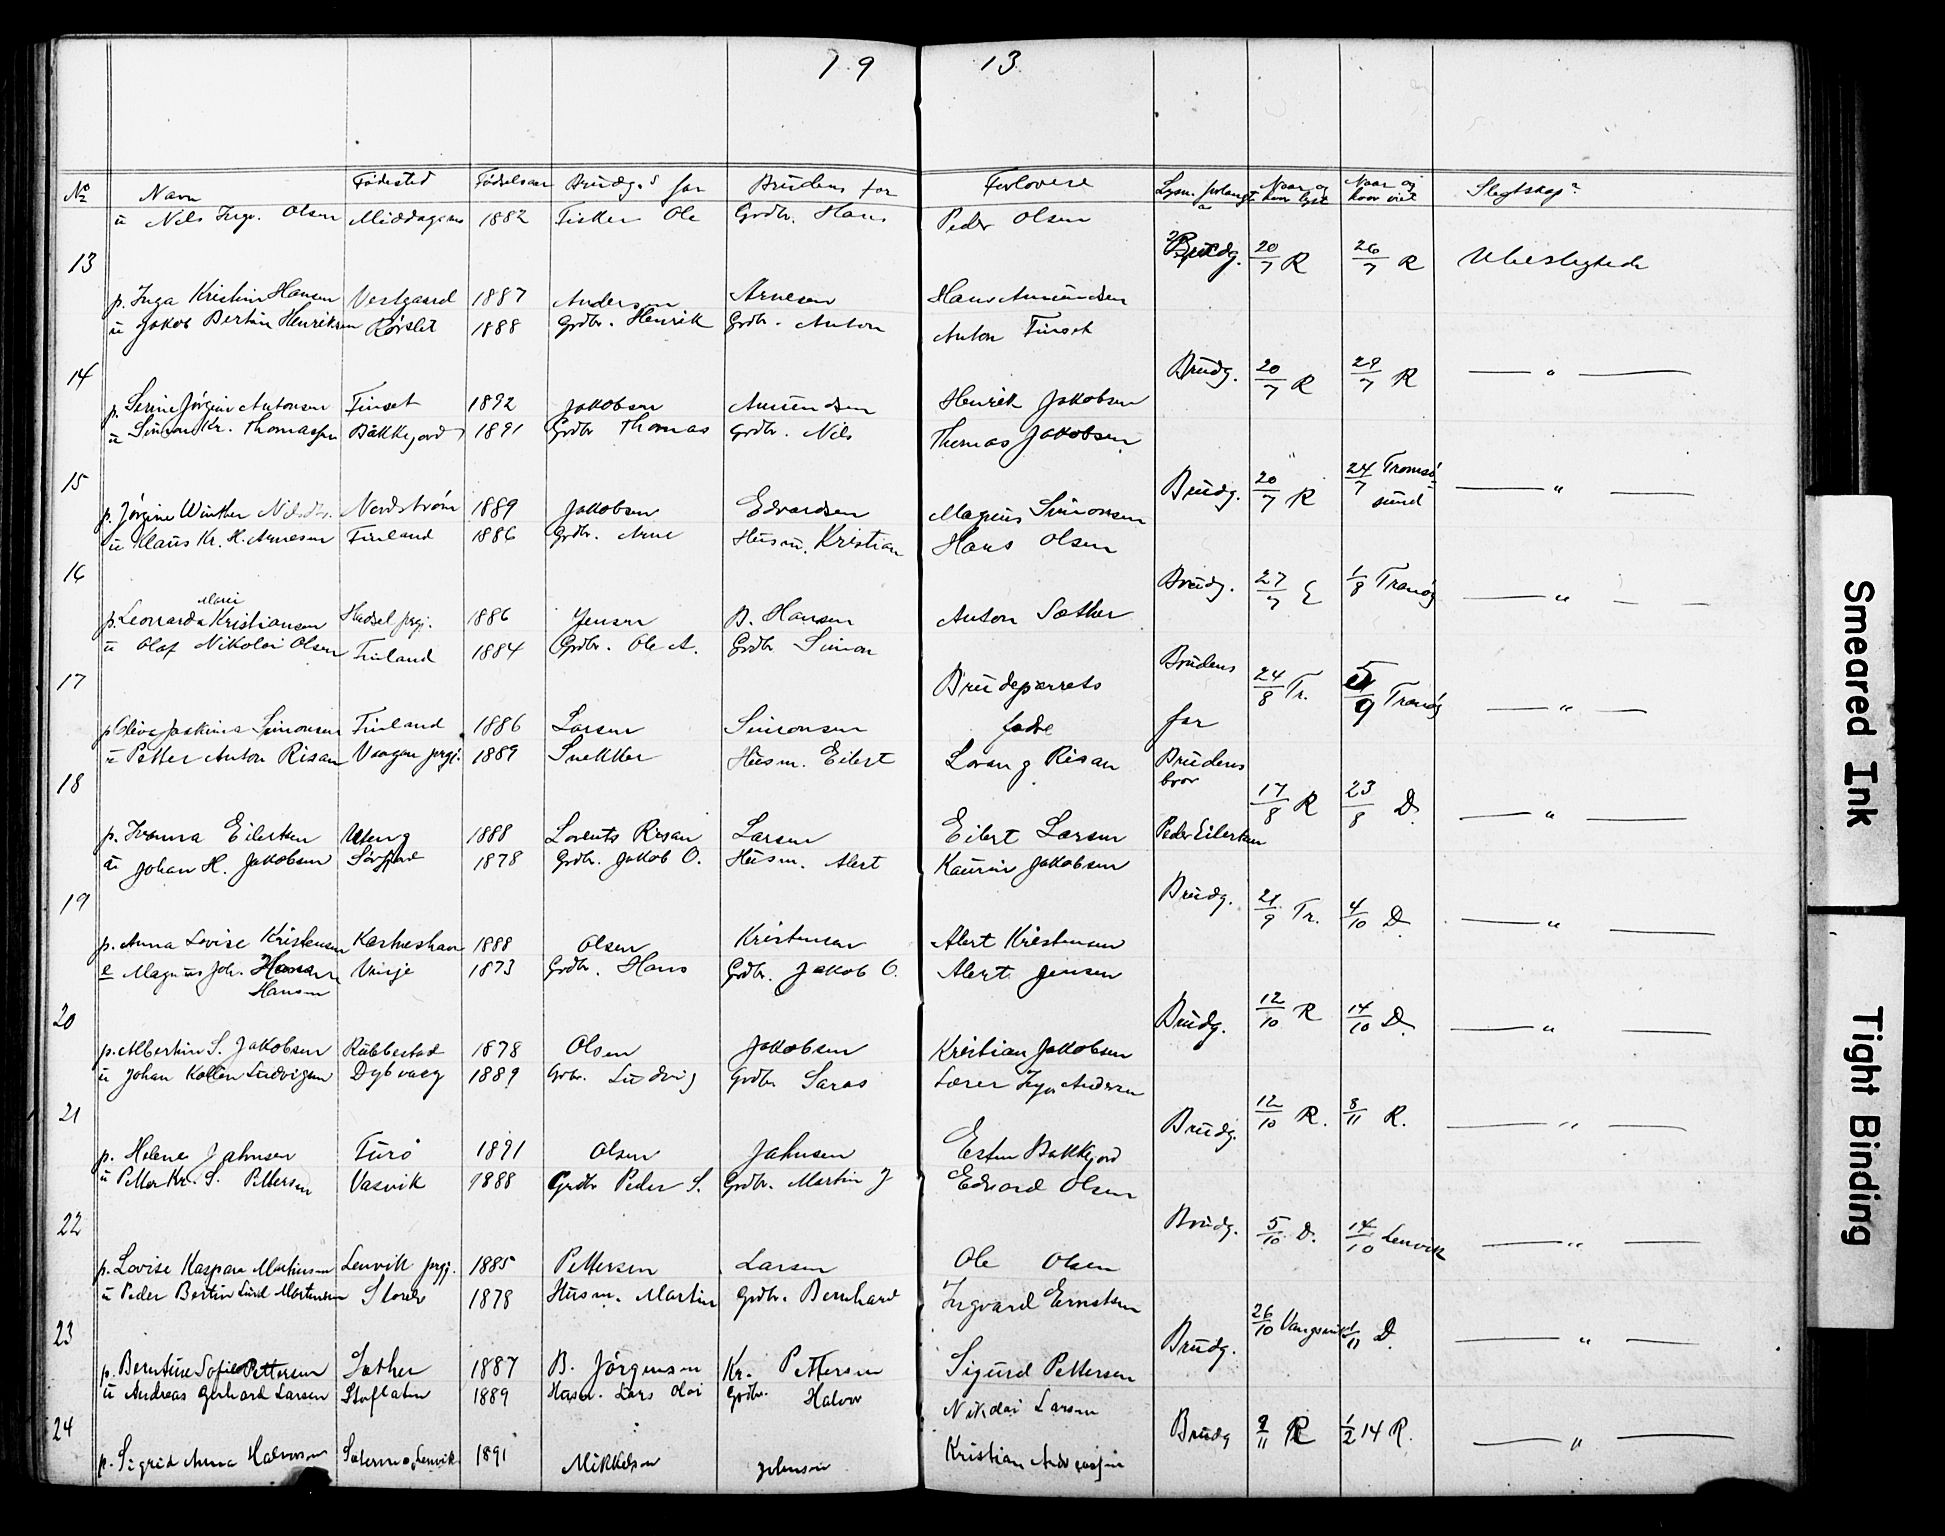 19 13
No Navn Fødested Fødselsaar Brudg.s far Brudens far Forlovere Lysn. forlangt a Naar og hvor lyst Naar og hvor viet Slegtskap?
13 u Nils Ingv. Olsen 1882 Fisker Ole Grdbr. Hans Peder Olsen
Brudg. 20/7 R 26/7 R Ubeslegtede
p. Inga Kristin Hansen Vestgaard 1887 Andersen Arnesen Hans Amundsen
14 u Jakob Bertin Henriksen Rørslet 1888 Grdbr. Henrik Grdbr. Anton Anton Finset
Brudg. 20/7 R 29/7 R — " —
p. Serine Jørgine Antonsen Finset 1892 Jakobsen Amundsen Henrik Jakobsen
15 u Simon Kr. Thomassen Bakkejord 1891 Grdbr Thomas Grdbr. Nils Thomas Jakobsen
Brudg. 20/7 R 24/7 Tromsøsund — " —
p. Jørgine Winther Nilsdtr. Nordstrøm 1889 Jakobsen Edvardsen Magnus Simonsen
16 u Klaus Kr. H. Arnesen Finland 1886 Grdbr. Arne Husm. Kristian Hans Olsen
Brudg. 27/7 E 1/8 Tranøy — " —
Marie
p. Leonarda Kristiansen Hadsel prgj. 1886 Jensen B. Hansen Anton Sæther
17 u Olaf Nikolai Olsen Finland 1884 Grdbr. Ole A. Grdbr Simon Brudeparrets
Brudens 24/8 Tr. 5/9 Tranøy — " —
p Oliva Jaskine Simonsen Finland 1886 Larsen Simonsen fædre far
18 u Petter Anton Risan Vaagan prgj. 1889 Snekker Husm. Eilert Lorang Risan Brudens bror
17/8 R 23/8 D. — " —
p. Ivanna Eilertsen Uteng 1888 Lorents Risan Larsen Eilert Larsen Peder Eilertsen
19 u Johan H. Jakobsen Sørfjord 1878 Grdbr. Jakob O. Husm. Alert Kaurin Jakobsen
Brudg. 21/9 Tr. 4/10 D. — " —
p. Anna Lovise Kristensen Kastneshavn 1888 Olsen Kristensen Alert Kristensen
20 e Magnus Joh. Hansen Vinje 1873 Grdbr. Hans Grdbr. Jakob O. Alert Jensen
Hansen
Brudg. 12/10 R 14/10 D. — " —
p. Albertine S. Jakobsen Rubbestad 1878 Olsen Jakobsen Kristian Jakobsen
21 u Johan Ludvigsen Dybvaag 1889 Grbr. Ludvig Grdbr Lærer Ingv. Andersen
Brudg. 12/10 R. 8/11 R. — " —
p. Helene Jahnsen 1891 Olsen Jahnsen Esten Bakkejord
22 u Petter Kr. S. Pettersen Vasvik 1888 Grdbr Peder S. Grdbr. Martin J Edvard Olsen
Brudg. 5/10 D. 14/10 Lenvik — " —
p. Lovise Kaspara Martinsen Lenvik prgj. 1885 Pettersen Larsen Ole Olsen
23 u Peder Bertin Lund Martinsen 1878 Husm. Martin Grdbr. Bernhard Ingvard Ernstsen
Brudg. 26/10 Vangsvik 1/11 D. — " —
p. Berntine Sofie Pettersen Sæther 1887 B. Jørgensen Kr. Pettersen Sigurd Pettersen
24 u Andreas Gerhard Larsen Stoflaten 1889 Husm. Lars Oloi Grdbr. Halvor Nikolai Larsen
Brudg 9/11 R 1/2 14 R. — " —
p. Sigrid Anna Halvorsen 1891 Mikkelsen Johnsen Kristian Andreassen
Smeared Ink
Tight Binding